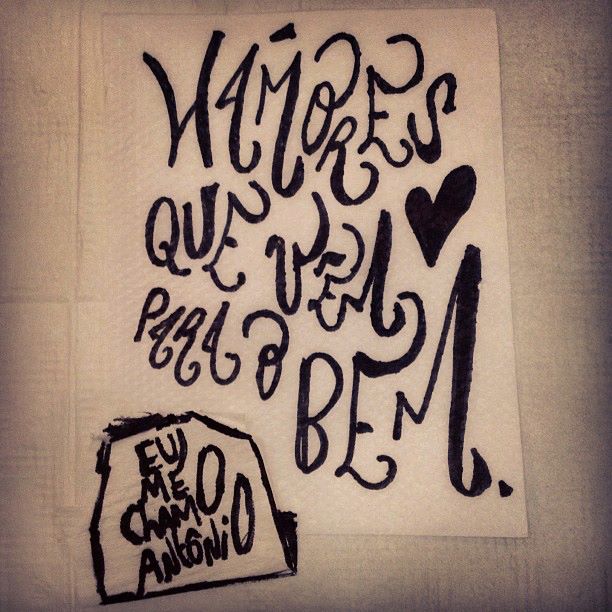 HÁMORES
QUE VÊM
PARA O
BEM.
EU
ME
CHAMO
ANTÔNIO